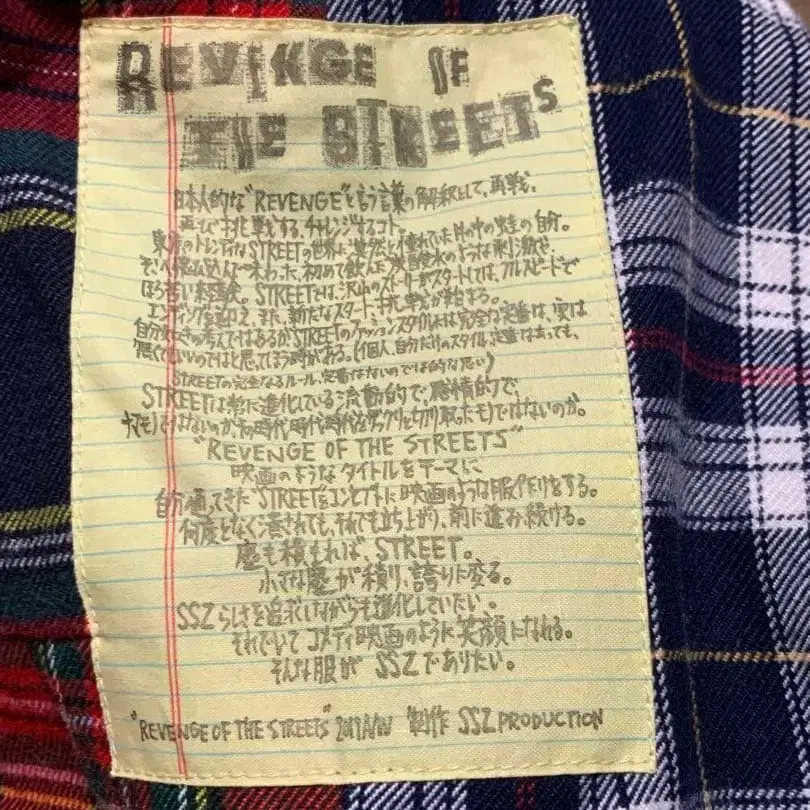 REVENGE OF
THE STREETS
日本人的な"REVENGE"と言う言葉の解釈として、再戦、
再び挑戦する、チャレンジするコト。
東京のトレンディなSTREETの世界に憧れていた井の中の蛙の自分。
そこへ飛び込んで味わった、初めて飲んだ炭酸水のような刺激、
ほろ苦い STREETでは、沢山のストーリーがスタートしては、フルスピードで
エンディングを迎え、また、新たなスタート、挑戦が始まる。
自分 の考えではあるがSTREETのファッションスタイルには完全な定番は、実は
無くていいのではと思ってしまう時がある。(個人、自分だけのスタイル、定番はあっても、
STREETの完全なるルール、定番はないのでは的な思い)
STREETは常に進化している流動的で、感情的で、
ナマモノではないのか、その時代時代をザックリと切り取ったモノではないのか。
"REVENGE OF THE STREETS"
映画のようなタイトルをテーマに
自分 通ってきた"STREETをコンセプトに映画のような服作りをする。
何度となく潰されても、それでも立ち上がり、前に進み続ける。
塵も積もれば、STREET。
小さな塵が積り、誇りに変る。
SSZらしさを追求しながらも進化していたい。
それでいてコメディ映画のように笑顔になれる。
そんな服が SSZでありたい。
"REVENGE OF THE STREETS" 2019A/W 制作 SSZ PRODUCTION